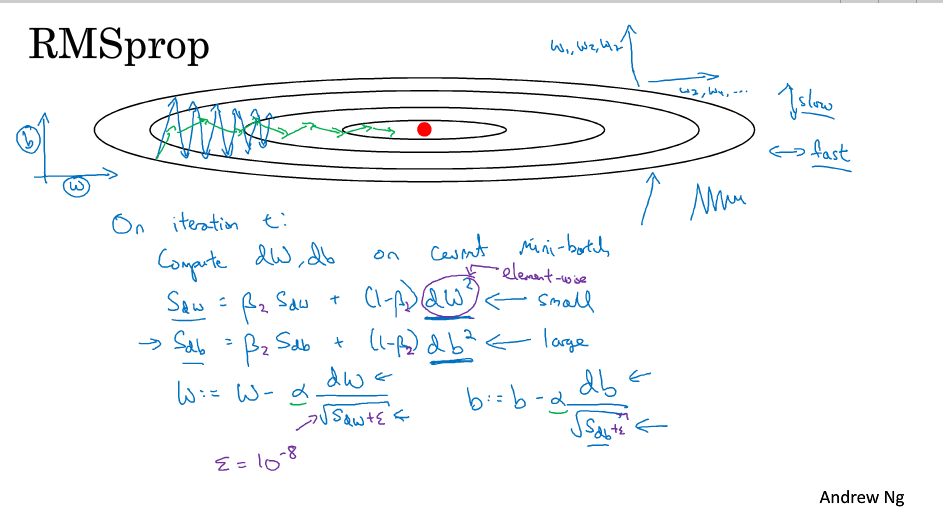 RMSprop
w₁, w₂, w₂
w₃, w₄, ...
↕ slow
↔ fast
b
w
On iteration t:
Compute dW, db on current mini-batch
element-wise
S_dw = β₂ S_dw + (1-β₂) dW² ← small
→ S_db = β₂ S_db + (1-β₂) db² ← large
W := W - α dW / √S_dw + ε ← b := b - α db / √S_db + ε ←
ε = 10⁻⁸
Andrew Ng